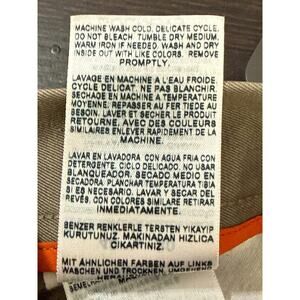 MACHINE WASH COLD, DELICATE CYCLE,
DO NOT BLEACH. TUMBLE DRY MEDIUM,
WARM IRON IF NEEDED. WASH AND DRY
INSIDE OUT WITH LIKE COLORS. REMOVE
PROMPTLY.
LAVAGE EN MACHINE A L'EAU FROIDE,
CYCLE DELICAT. NE PAS BLANCHIR.
SECHAGE EN MACHINE A TEMPERATURE
MOYENNE; REPASSER AU FER TIEDE AU
BESOIN. LAVER ET SECHER LE PRODUIT
RETOURNE, AVEC DES COULEURS
SIMILAIRES ENLEVER RAPIDEMENT DE LA
MACHINE.
LAVAR EN LAVADORA CON AGUA FRIA CON
DETERGENTE. CICLO DELICADO. NO USAR
BLANQUEADOR. SECADO MEDIO EN
SECADORA. PLANCHAR TEMPERATURA TIBIA
SI ES NECESARIO. LAVAR Y SECAR DEL
REVÉS, CON COLORES SIMILARE RETIRAR
INMEDIATAMENTE.
BENZER RENKLERLE TERSTEN YIKAYIP
KURUTUNUZ. MAKINADAN HIZLICA
CIKARTINIZ.
MIT ÄHNLICHEN FARBEN AUF LINKS
WASCHEN UND TROCKNEN. UMGEHEND